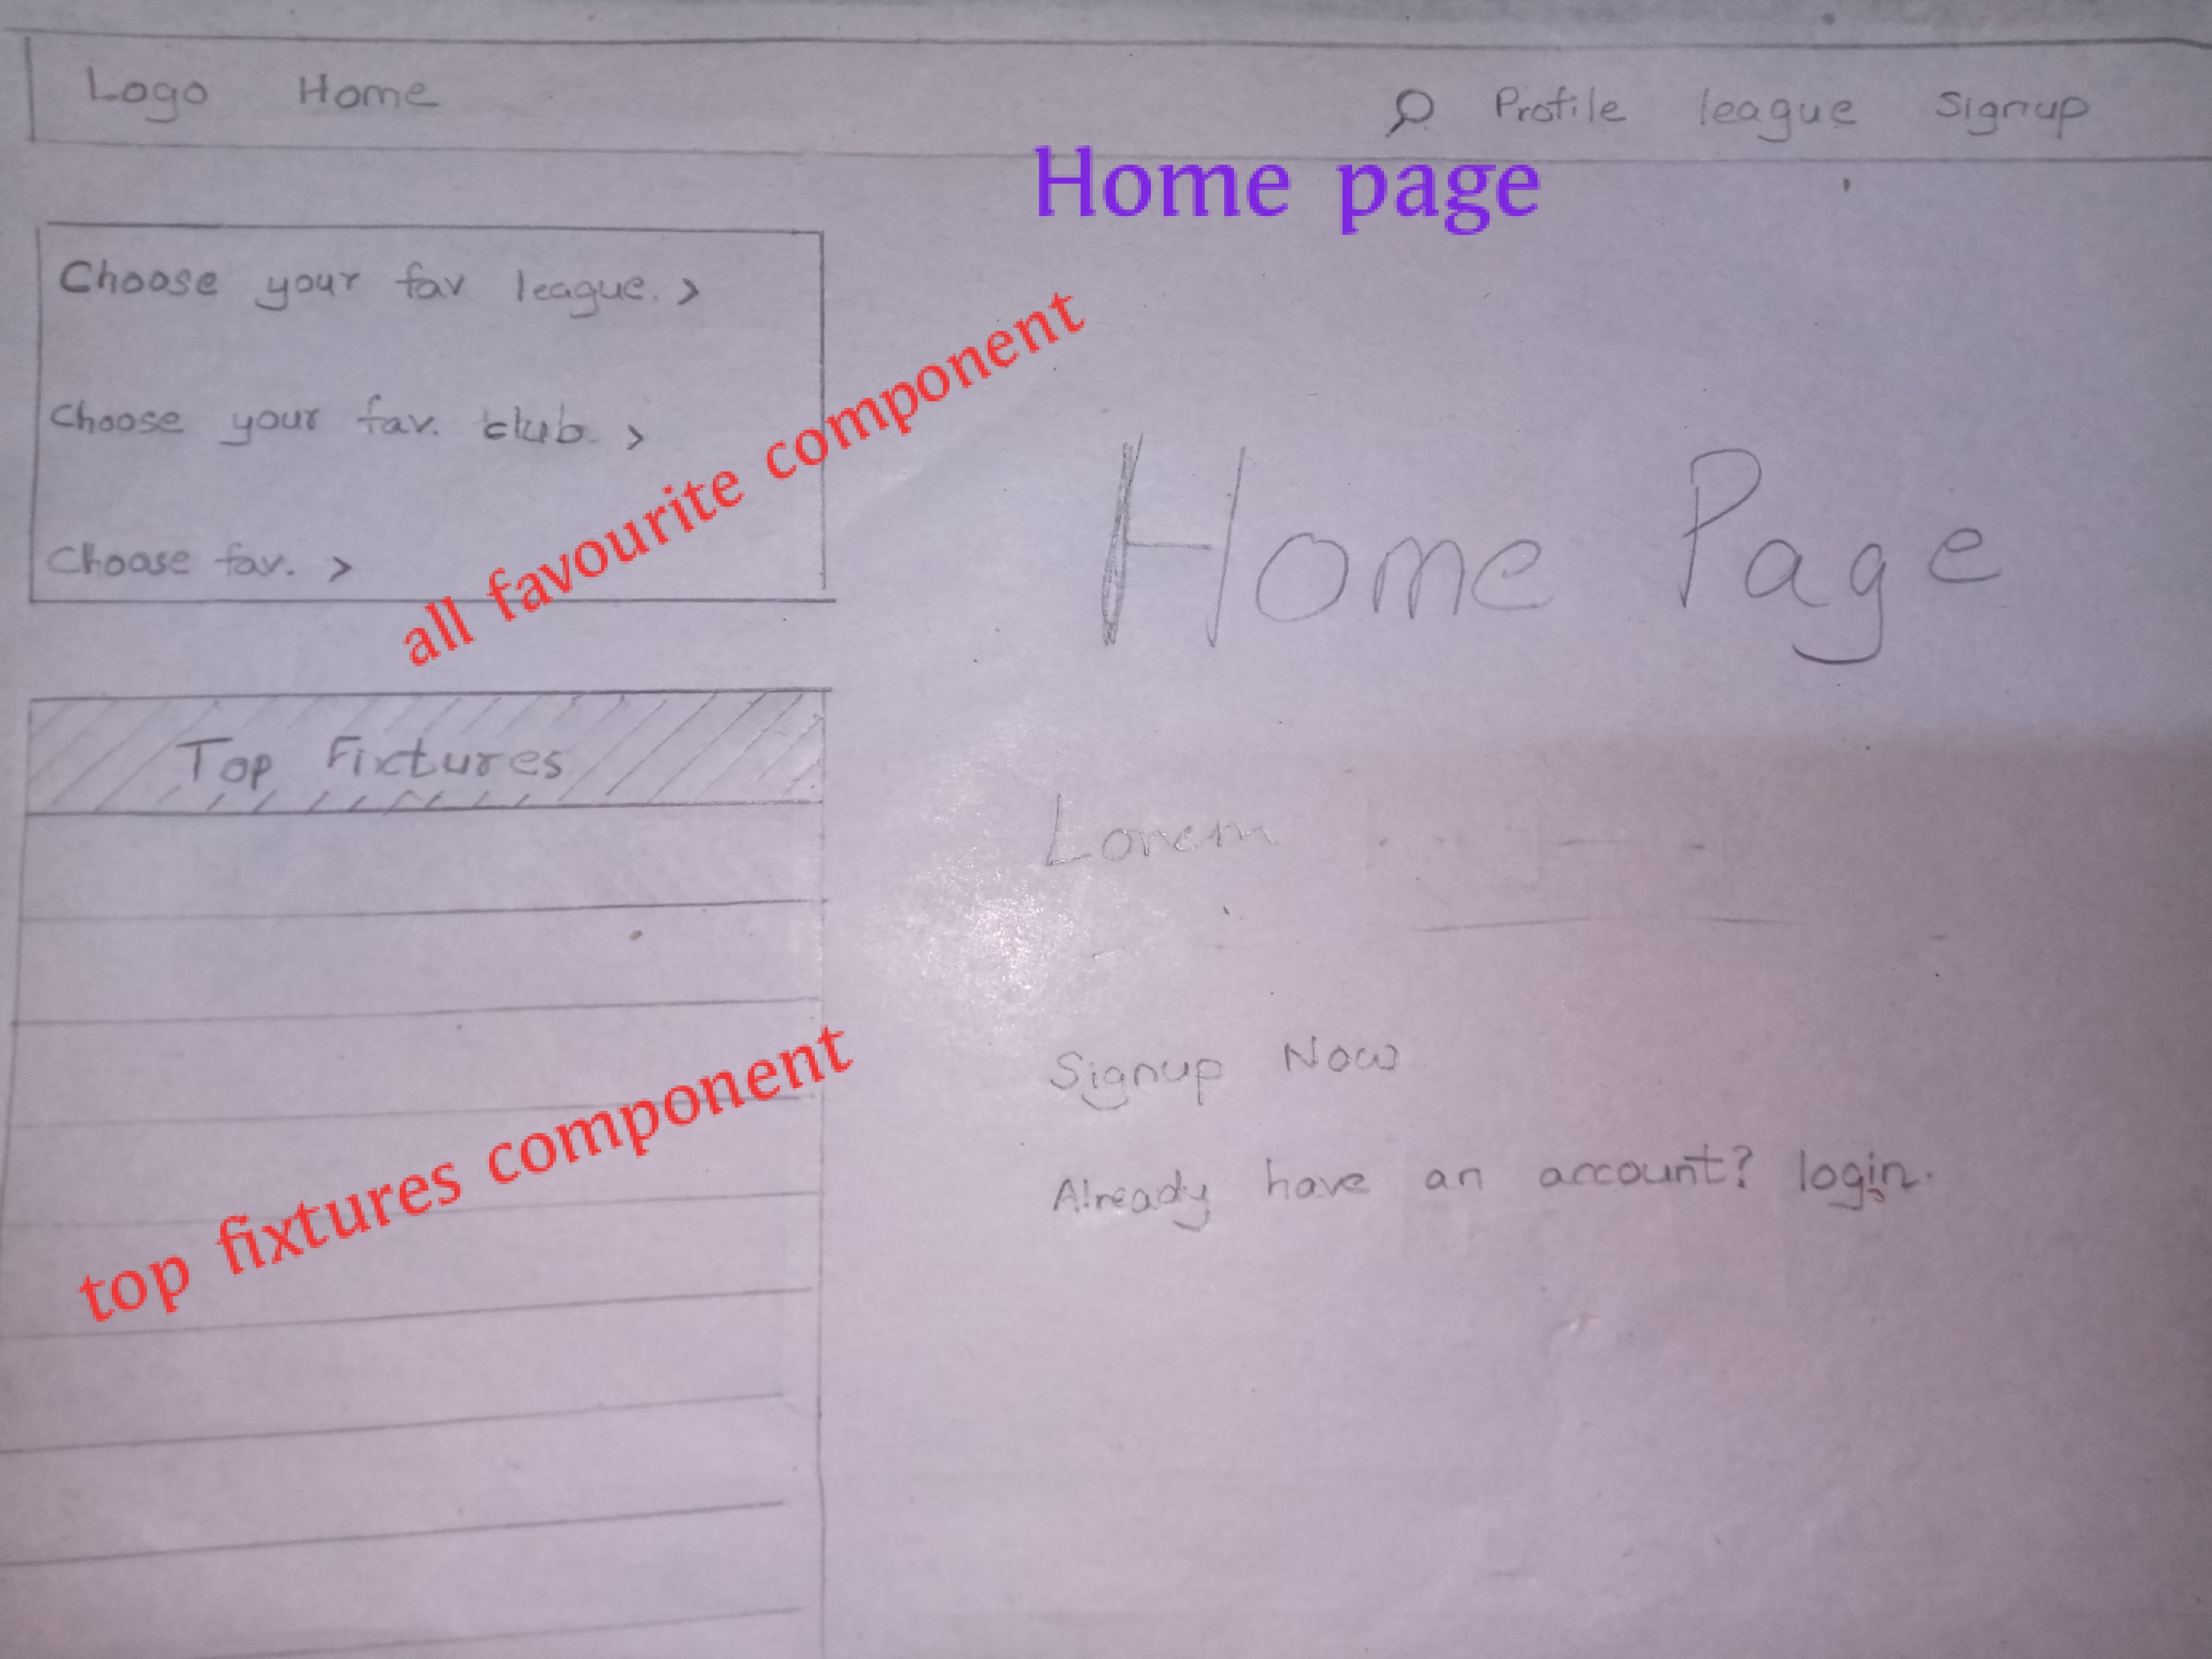 Logo Home Profile league Signup
Home page
Choose your fav league. >
Choose your fav. club. >
Choose fav. >
all favourite component
Top Fixtures
top fixtures component
Home Page
Lorem
Signup Now
Already have an account? login.